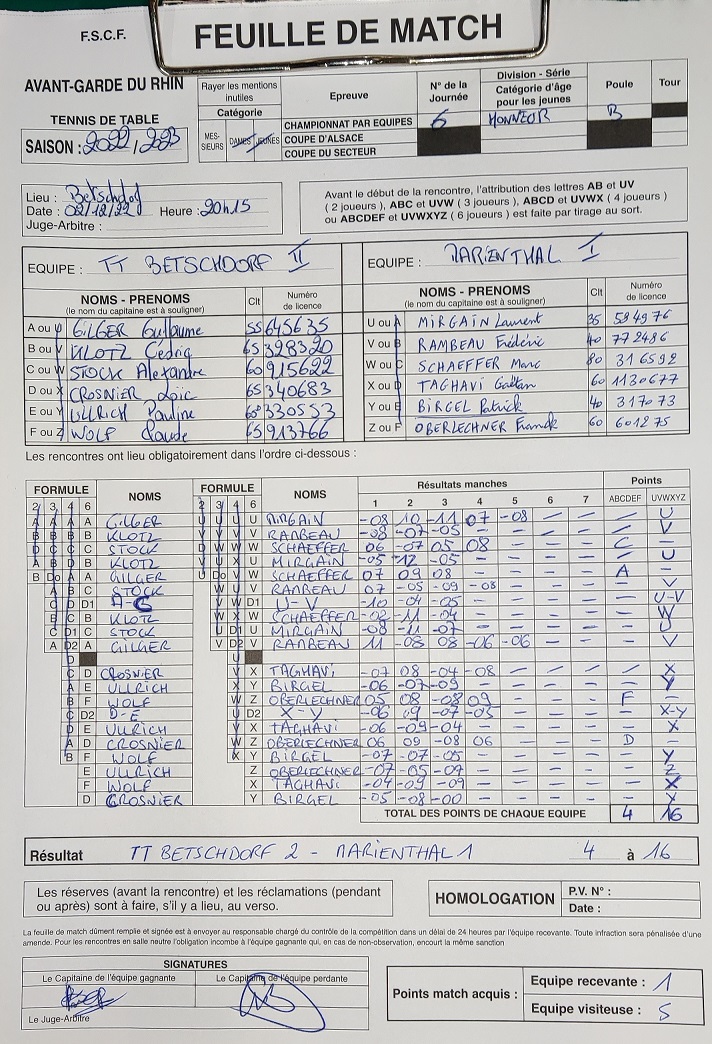 F.S.C.F.
FEUILLE DE MATCH
AVANT-GARDE DU RHIN
TENNIS DE TABLE
SAISON : 2022/2023
Rayer les mentions inutiles
Catégorie
MES-SIEURS DAMES JEUNES
Epreuve
CHAMPIONNAT PAR EQUIPES
COUPE D'ALSACE
COUPE DU SECTEUR
N° de la Journée
6
Division - Série
Catégorie d'âge pour les jeunes
HONNEUR
Poule
B
Tour
Lieu : Betschdorf
Date : 02/12/22 Heure : 20h15
Juge-Arbitre :
Avant le début de la rencontre, l'attribution des lettres AB et UV
( 2 joueurs ), ABC et UVW ( 3 joueurs ), ABCD et UVWX ( 4 joueurs )
ou ABCDEF et UVWXYZ ( 6 joueurs ) est faite par tirage au sort.
EQUIPE : TT BETSCHDORF II
EQUIPE : MARIENTHAL I
NOMS - PRENOMS (le nom du capitaine est à souligner) Clt Numéro de licence
A ou U GILGER Guillaume 55 645635
B ou V KLOTZ Cédric 65 328320
C ou W STOCK Alexandre 60 915622
D ou X CROSNIER Loïc 65 340683
E ou Y ULLRICH Pauline 60 330553
F ou Z WOLF Claude 65 913766
NOMS - PRENOMS (le nom du capitaine est à souligner) Clt Numéro de licence
U ou A MIRGAIN Laurent 35 594976
V ou B RAMBEAU Frédéric 40 772486
W ou C SCHAEFFER Marc 80 316592
X ou D TAGHAVI Gaëtan 60 1130677
Y ou E BIRGEL Patrick 40 317073
Z ou F OBERLECHNER Franck 60 601275
Les rencontres ont lieu obligatoirement dans l'ordre ci-dessous :
FORMULE NOMS FORMULE NOMS Résultats manches Points
2 3 4 6 2 3 4 6 1 2 3 4 5 6 7 ABCDEF UVWXYZ
A A A A GILGER U U U U MIRGAIN -08 10 -11 07 -08 - - - U
B B B B KLOTZ V V V V RAMBEAU -08 -07 -05 - - - - - V
C STOCK W W SCHAEFFER 06 -07 05 08 - - - C -
A B D B KLOTZ U X U MIRGAIN -05 -12 -05 - - - - - U
B Do A A GILGER U Do V W SCHAEFFER 07 09 08 - - - - A -
C STOCK W U V RAMBEAU 07 -05 -09 -08 - - - - V
C D D1 A-C V W D1 U-V -10 -04 -05 - - - - - U-V
B C B KLOTZ W X W SCHAEFFER -02 -11 -04 - - - - - W
C D1 C STOCK U D1 U MIRGAIN -08 -11 -07 - - - - - U
A D2 A GILGER V D2 V RAMBEAU 11 -08 08 -06 -06 - - - V
D U
C D CROSNIER V X TAGHAVI -07 08 -04 -08 - - - - X
A E ULLRICH X Y BIRGEL -06 -07 -09 - - - - - Y
B F WOLF W Z OBERLECHNER 05 08 -08 09 - - - F -
C D2 D-E U D2 X-Y -06 09 -07 -03 - - - - X-Y
D E ULLRICH V X TAGHAVI -06 -09 -04 - - - - - X
A D CROSNIER W Z OBERLECHNER 06 09 -08 06 - - - D -
B F WOLF X Y BIRGEL -07 -07 -05 - - - - - Y
E ULLRICH Z OBERLECHNER -07 -05 -07 - - - - - Z
F WOLF X TAGHAVI -04 -09 -09 - - - - - X
D CROSNIER Y BIRGEL -05 -08 -00 - - - - - Y
TOTAL DES POINTS DE CHAQUE EQUIPE 4 16
Résultat TT BETSCHDORF 2 - MARIENTHAL 1 4 à 16
Les réserves (avant la rencontre) et les réclamations (pendant
ou après) sont à faire, s'il y a lieu, au verso.
HOMOLOGATION
P.V. N° :
Date :
La feuille de match dûment remplie et signée est à envoyer au responsable chargé du contrôle de la compétition dans un délai de 24 heures par l'équipe recevante. Toute infraction sera pénalisée d'une
amende. Pour les rencontres en salle neutre l'obligation incombe à l'équipe gagnante qui, en cas de non-observation, encourt la même sanction
SIGNATURES
Le Capitaine de l'équipe gagnante
Le Capitaine de l'équipe perdante
Le Juge-Arbitre
Points match acquis :
Equipe recevante : 1
Equipe visiteuse : 5